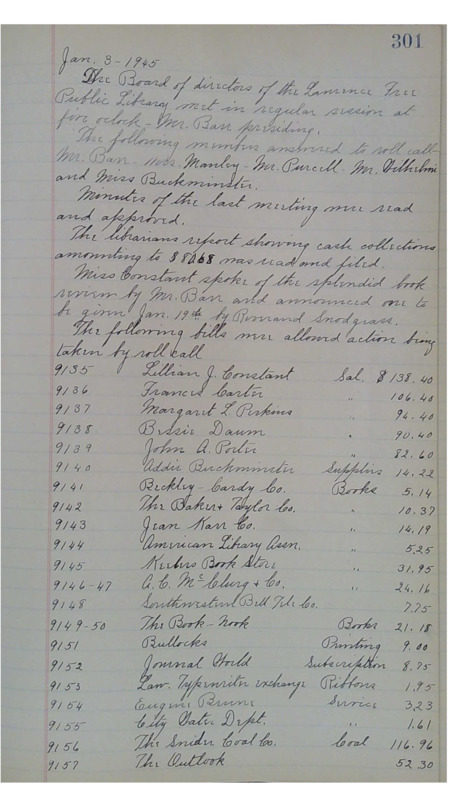 301
Jan. 3-1945
The Board of directors of the Lawrence Free
Public Library met in regular session at
five oclock - Mr. Barr presiding.
The following members answered to roll call-
Mr. Barr - Mrs. Manley - Mr. Purcell - Mr. Wilhelmi
and Miss Buckminster.
Minutes of the last meeting were read
and approved.
The librarians report showing cash collections
amounting to $ 80.68 was read and filed.
Miss Constant spoke of the splendid book
review by Mr. Barr and announced one to
be given Jan. 19th by Reverand Snodgrass.
The following bills were allowed action being
taken by roll call
9135 Lillian J. Constant Sal. $ 138.40
9136 Francis Carter " 106.40
9137 Margaret L. Perkins " 94.40
9138 Bessie Daum " 90.40
9139 John A. Porter " 82.60
9140 Addie Buckminster Supplies 14.22
9141 Beckley-Cardy Co. Books 5.14
9142 The Baker + Taylor Co. " 10.37
9143 Jean Karr Co. " 14.19
9144 American Library Assn. " 5.25
9145 Keelers Book Store " 31.95
9146-47 A. C. McClurg + Co. " 24.16
9148 Southwestern Bell Tel. Co. 7.75
9149-50 The Book-Nook Books 21.18
9151 Bullocks Printing 9.00
9152 Journal World Subscription 8.75
9153 Law. Typewriter exchange Ribbons 1.95
9154 Eugene Service 3.23
9155 City Water Dept. " 1.61
9156 The Snider Coal Co. Coal 116.96
9157 The Outlook 52.30